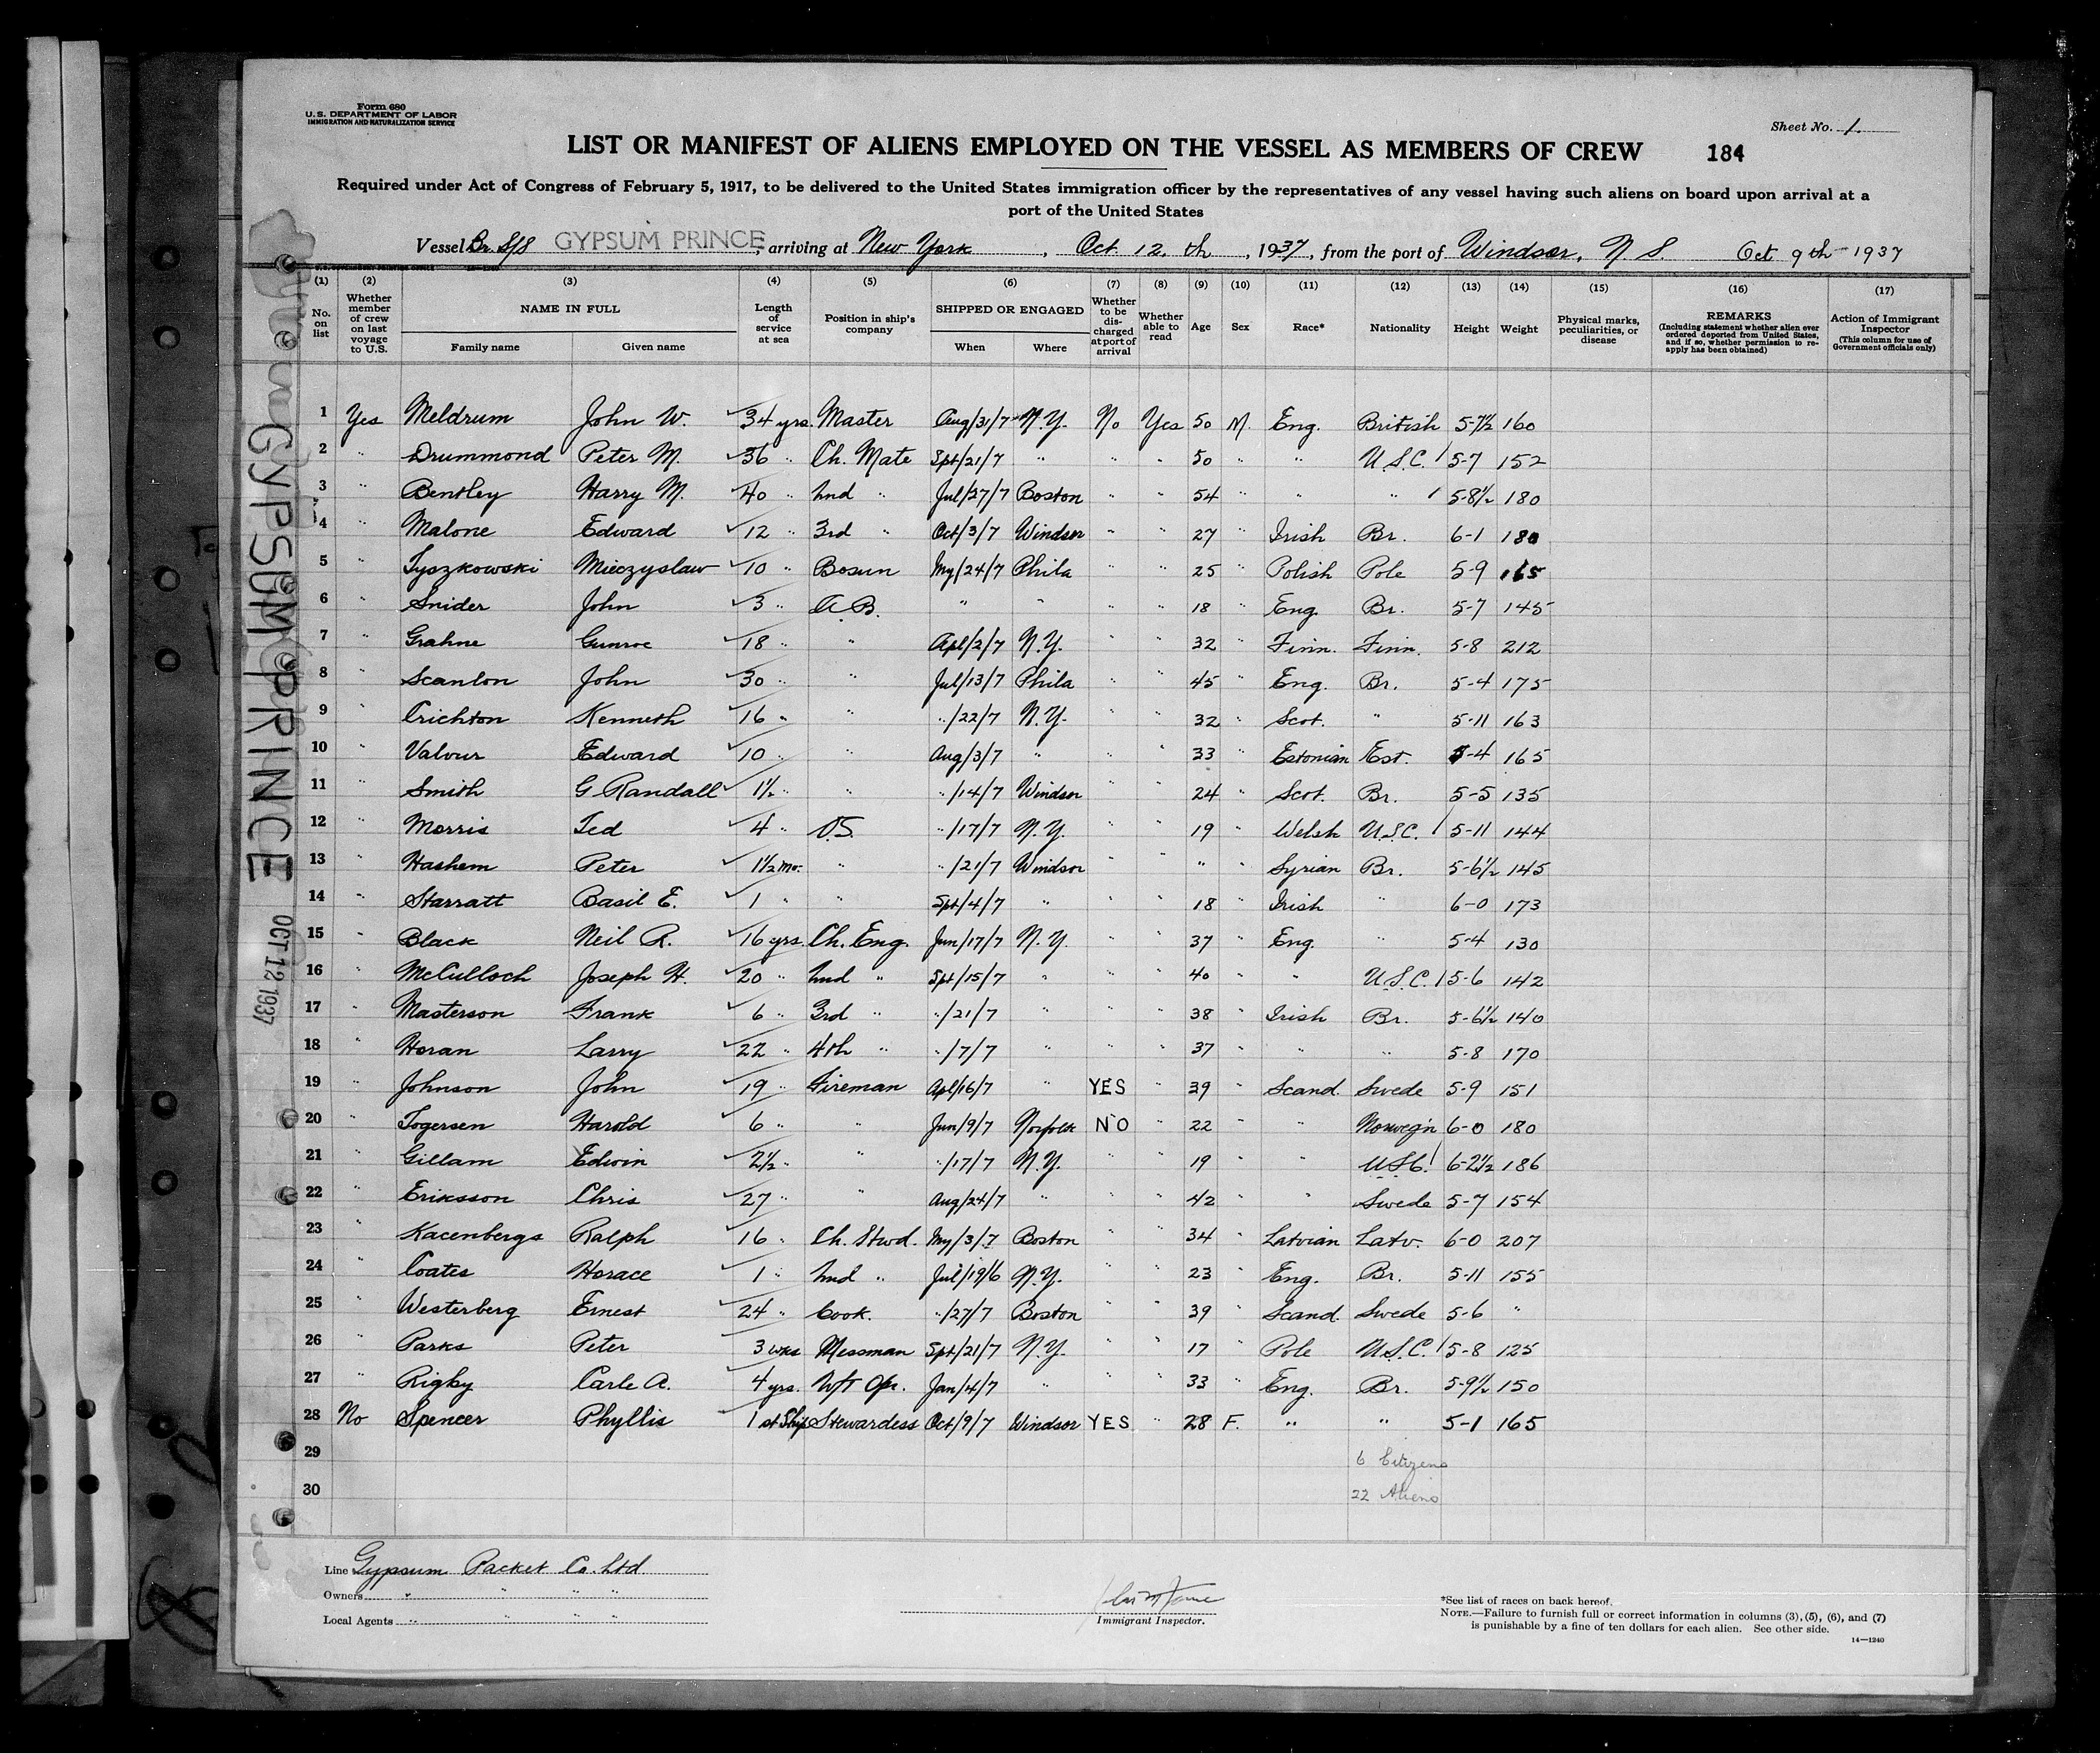 Form 680
U.S. DEPARTMENT OF LABOR
IMMIGRATION AND NATURALIZATION SERVICE
Sheet No. 1.
LIST OR MANIFEST OF ALIENS EMPLOYED ON THE VESSEL AS MEMBERS OF CREW 184
Required under Act of Congress of February 5, 1917, to be delivered to the United States immigration officer by the representatives of any vessel having such aliens on board upon arrival at a
port of the United States
Vessel Br. S/S GYPSUM PRINCE, arriving at New York, Oct 12. th, 1937, from the port of Windsor, N. S. Oct 9th - 1937
(1) (2) (3) (4) (5) (6) (7) (8) (9) (10) (11) (12) (13) (14) (15) (16) (17)
No. on list
Whether member of crew on last voyage to U.S.
NAME IN FULL
Family name
Given name
Length of service at sea
Position in ship's company
SHIPPED OR ENGAGED
When
Where
Whether to be discharged at port of arrival
Whether able to read
Age
Sex
Race*
Nationality
Height
Weight
Physical marks, peculiarities, or disease
REMARKS
(Including statement whether alien ever ordered deported from United States, and if so, whether permission to re-apply has been obtained)
Action of Immigrant Inspector
(This column for use of Government officials only)
1 Yes Meldrum John W. 34 yrs. Master Aug/31/7 N.Y. No Yes 50 M. Eng. British 5-7½ 160
2 " Drummond Peter M. 36 " Ch. Mate Spt/21/7 " " " 50 " " U.S.C. 5-7 152
3 " Bentley Harry M. 40 " 2nd " Jul/27/7 Boston " " 54 " " " 5-8½ 180
4 " Malone Edward 12 " 3rd " Oct/3/7 Windsor " " 27 " Irish Br. 6-1 180
5 " Tyszkowski Mieczyslaw 10 " Bosun My/24/7 Phila " " 25 " Polish Pole 5-9 165
6 " Snider John 3 " A.B. " " " " 18 " Eng. Br. 5-7 145
7 " Grahne Gunroe 18 " " Apl/2/7 N.Y. " " 32 " Finn. Finn. 5-8 212
8 " Scanlon John 30 " " Jul/13/7 Phila " " 45 " Eng. Br. 5-4 175
9 " Crichton Kenneth 16 " " "/22/7 N.Y. " " 32 " Scot. " 5-11 163
10 " Valvur Edward 10 " " Aug/3/7 " " " 33 " Estonian Est. 5-4 165
11 " Smith G Randall 1½ " " "/14/7 Windsor " " 24 " Scot. Br. 5-5 135
12 " Morris Ted 4 " O.S. "/17/7 N.Y. " " 19 " Welsh U.S.C. 5-11 144
13 " Hashem Peter 1½ mo. " "/21/7 Windsor " " " " Syrian Br. 5-6½ 145
14 " Starratt Basil E. 1 " " Spt/4/7 " " " 18 " Irish " 6-0 173
15 " Black Neil R. 16 yrs. Ch. Eng. Jun/17/7 N.Y. " " 37 " Eng. " 5-4 130
16 " McCulloch Joseph H. 20 " 2nd " Spt/15/7 " " " 40 " " U.S.C. 5-6 142
17 " Masterson Frank 6 " 3rd " "/21/7 " " " 38 " Irish Br. 5-6½ 140
18 " Horan Larry 22 " 4th " "/7/7 " " " 37 " " " 5-8 170
19 " Johnson John 19 " Fireman Apl/16/7 " YES " 39 " Scand. Swede 5-9 151
20 " Togersen Harold 6 " " Jun/9/7 Norfolk NO " 22 " " Norweg'n 6-0 180
21 " Gillam Edwin 2½ " " "/17/7 N.Y. " " 19 " " U.S.C. 6-2½ 186
22 " Eriksson Chris 27 " " Aug/24/7 " " " 42 " " Swede 5-7 154
23 " Kacenbergs Ralph 16 " Ch. Stwd. My/3/7 Boston " " 34 " Latvian Latv. 6-0 207
24 " Coates Horace 1 " 2nd " Jul/19/6 N.Y. " " 23 " Eng. Br. 5-11 155
25 " Westerberg Ernest 24 " Cook. "/27/7 Boston " " 39 " Scand. Swede 5-6 "
26 " Parks Peter 3 wks Messman Spt/21/7 N.Y. " " 17 " Pole U.S.C. 5-8 125
27 " Rigby Carle A. 4 yrs. W/T Opr. Jan/4/7 " " " 33 " Eng. Br. 5-9½ 150
28 No Spencer Phyllis 1st Ship Stewardess Oct/9/7 Windsor YES " 28 F. " " 5-1 165
29 6 Citizens
30 22 Aliens
Line Gypsum Packet Co. Ltd.
Owners " " " "
Local Agents " " " "
Immigrant Inspector.
*See list of races on back hereof.
NOTE.—Failure to furnish full or correct information in columns (3), (5), (6), and (7)
is punishable by a fine of ten dollars for each alien. See other side.
14—1240
GYPSUM PRINCE
OCT 12 1937